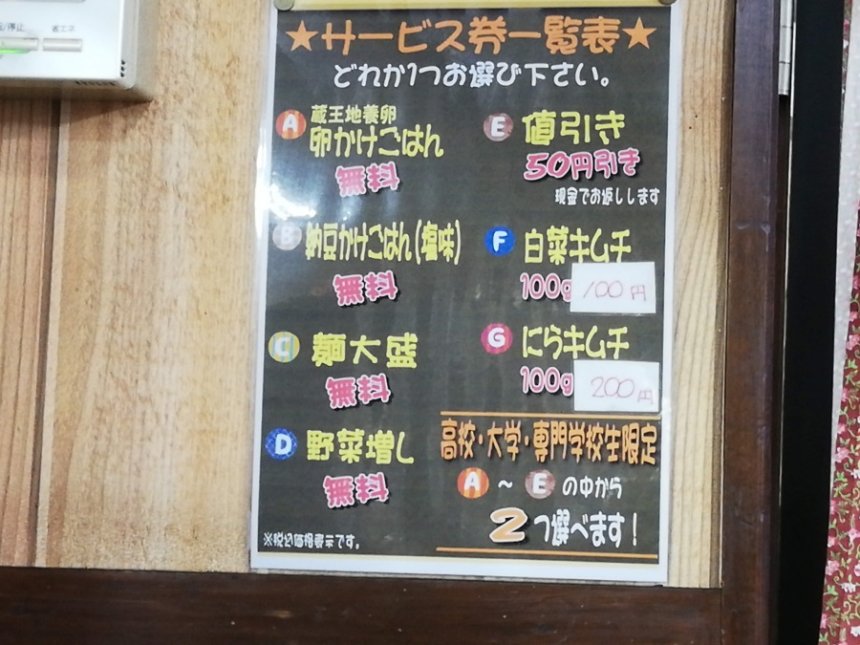 ★サービス券一覧表★
どれか1つお選び下さい。
A 蔵王地養卵
卵かけごはん
無料
B 納豆かけごはん(塩味)
無料
C 麺大盛
無料
D 野菜増し
無料
※税込価格表示です。
E 値引き
50円引き
現金でお返しします
F 白菜キムチ
100g 100円
G にらキムチ
100g 200円
高校・大学・専門学校生限定
A ~ E の中から
2つ選べます!
停止
省エネ